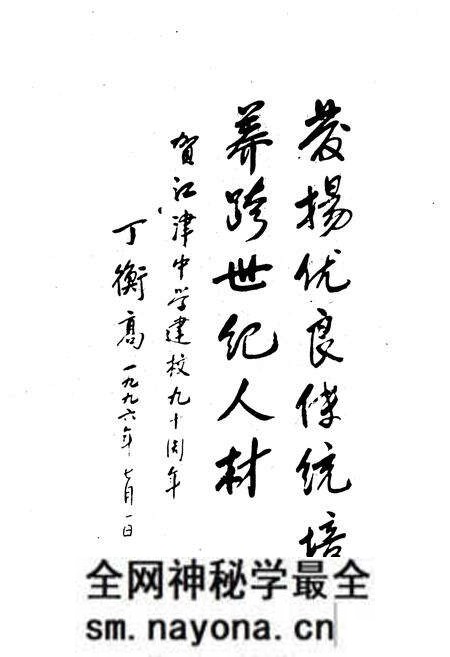 發揚优良傳統培
养跨世纪人材
贺江津中学建校九十周年
丁衡高 一九九六年七月一日
全网神秘学最全
sm.nayona.cn